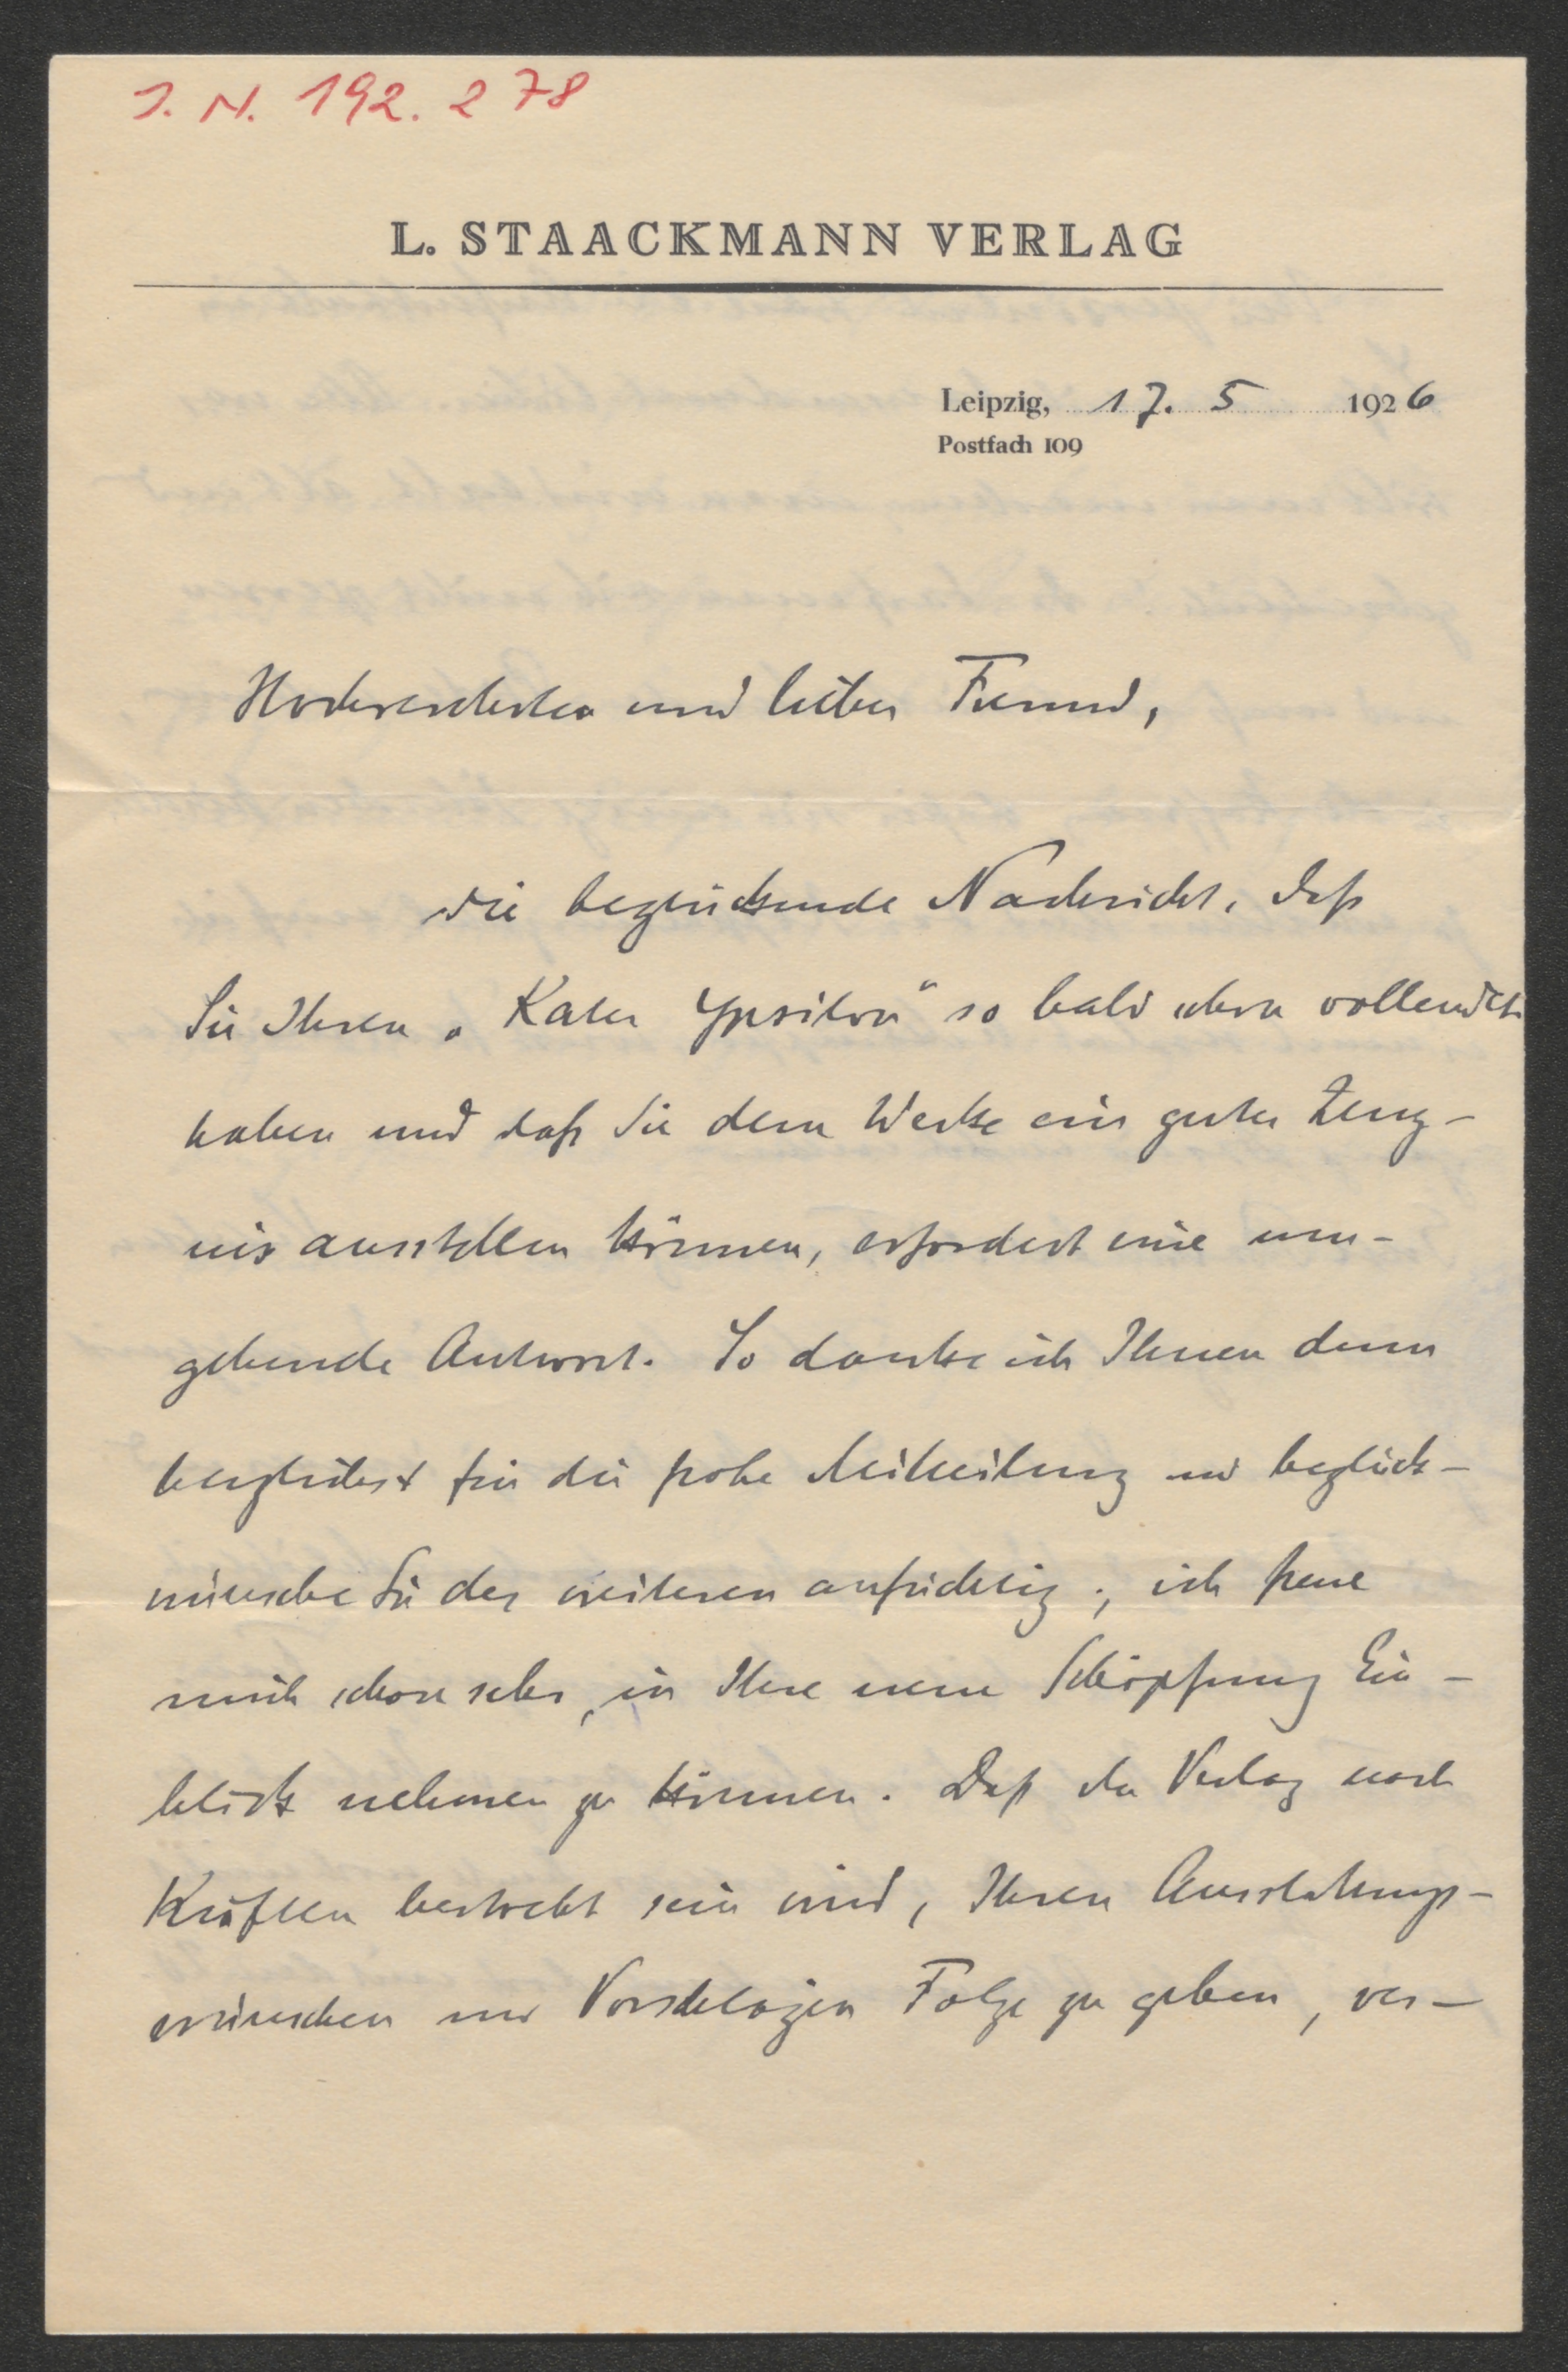 J. N. 192.278
L. STAACKMANN VERLAG
Leipzig, 17. 5 1926
Postfach 109
Hochverehrter und lieber Freund,
die beglückende Nachricht, daß
Sie Ihren „Kater Ypsilon“ so bald schon vollendet
haben und daß Sie dem Werke ein gutes Zeug-
nis ausstellen können, erfordert eine um-
gehende Antwort. So danke ich Ihnen denn
herzlichst für die frohe Mitteilung und beglück-
wünsche Sie des weiteren aufrichtig; ich freue
mich schon sehr, in Ihre neue Schöpfung Ein-
blick nehmen zu können. Daß der Verlag nach
Kräften bestrebt sein wird, Ihren Ausstattungs-
wünschen und Vorschlägen Folge zu geben, ver-